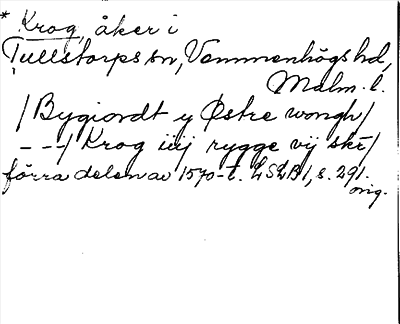 * Krog, åker i
Tullstorps sn, Vemmenhögs hd,
Malm. l.
/Bygiordt y Østre wongh/
- - -/ Krog iiij rygge vij skr/
förra delen av 1570-t. LSLB1, s. 291.
orig.